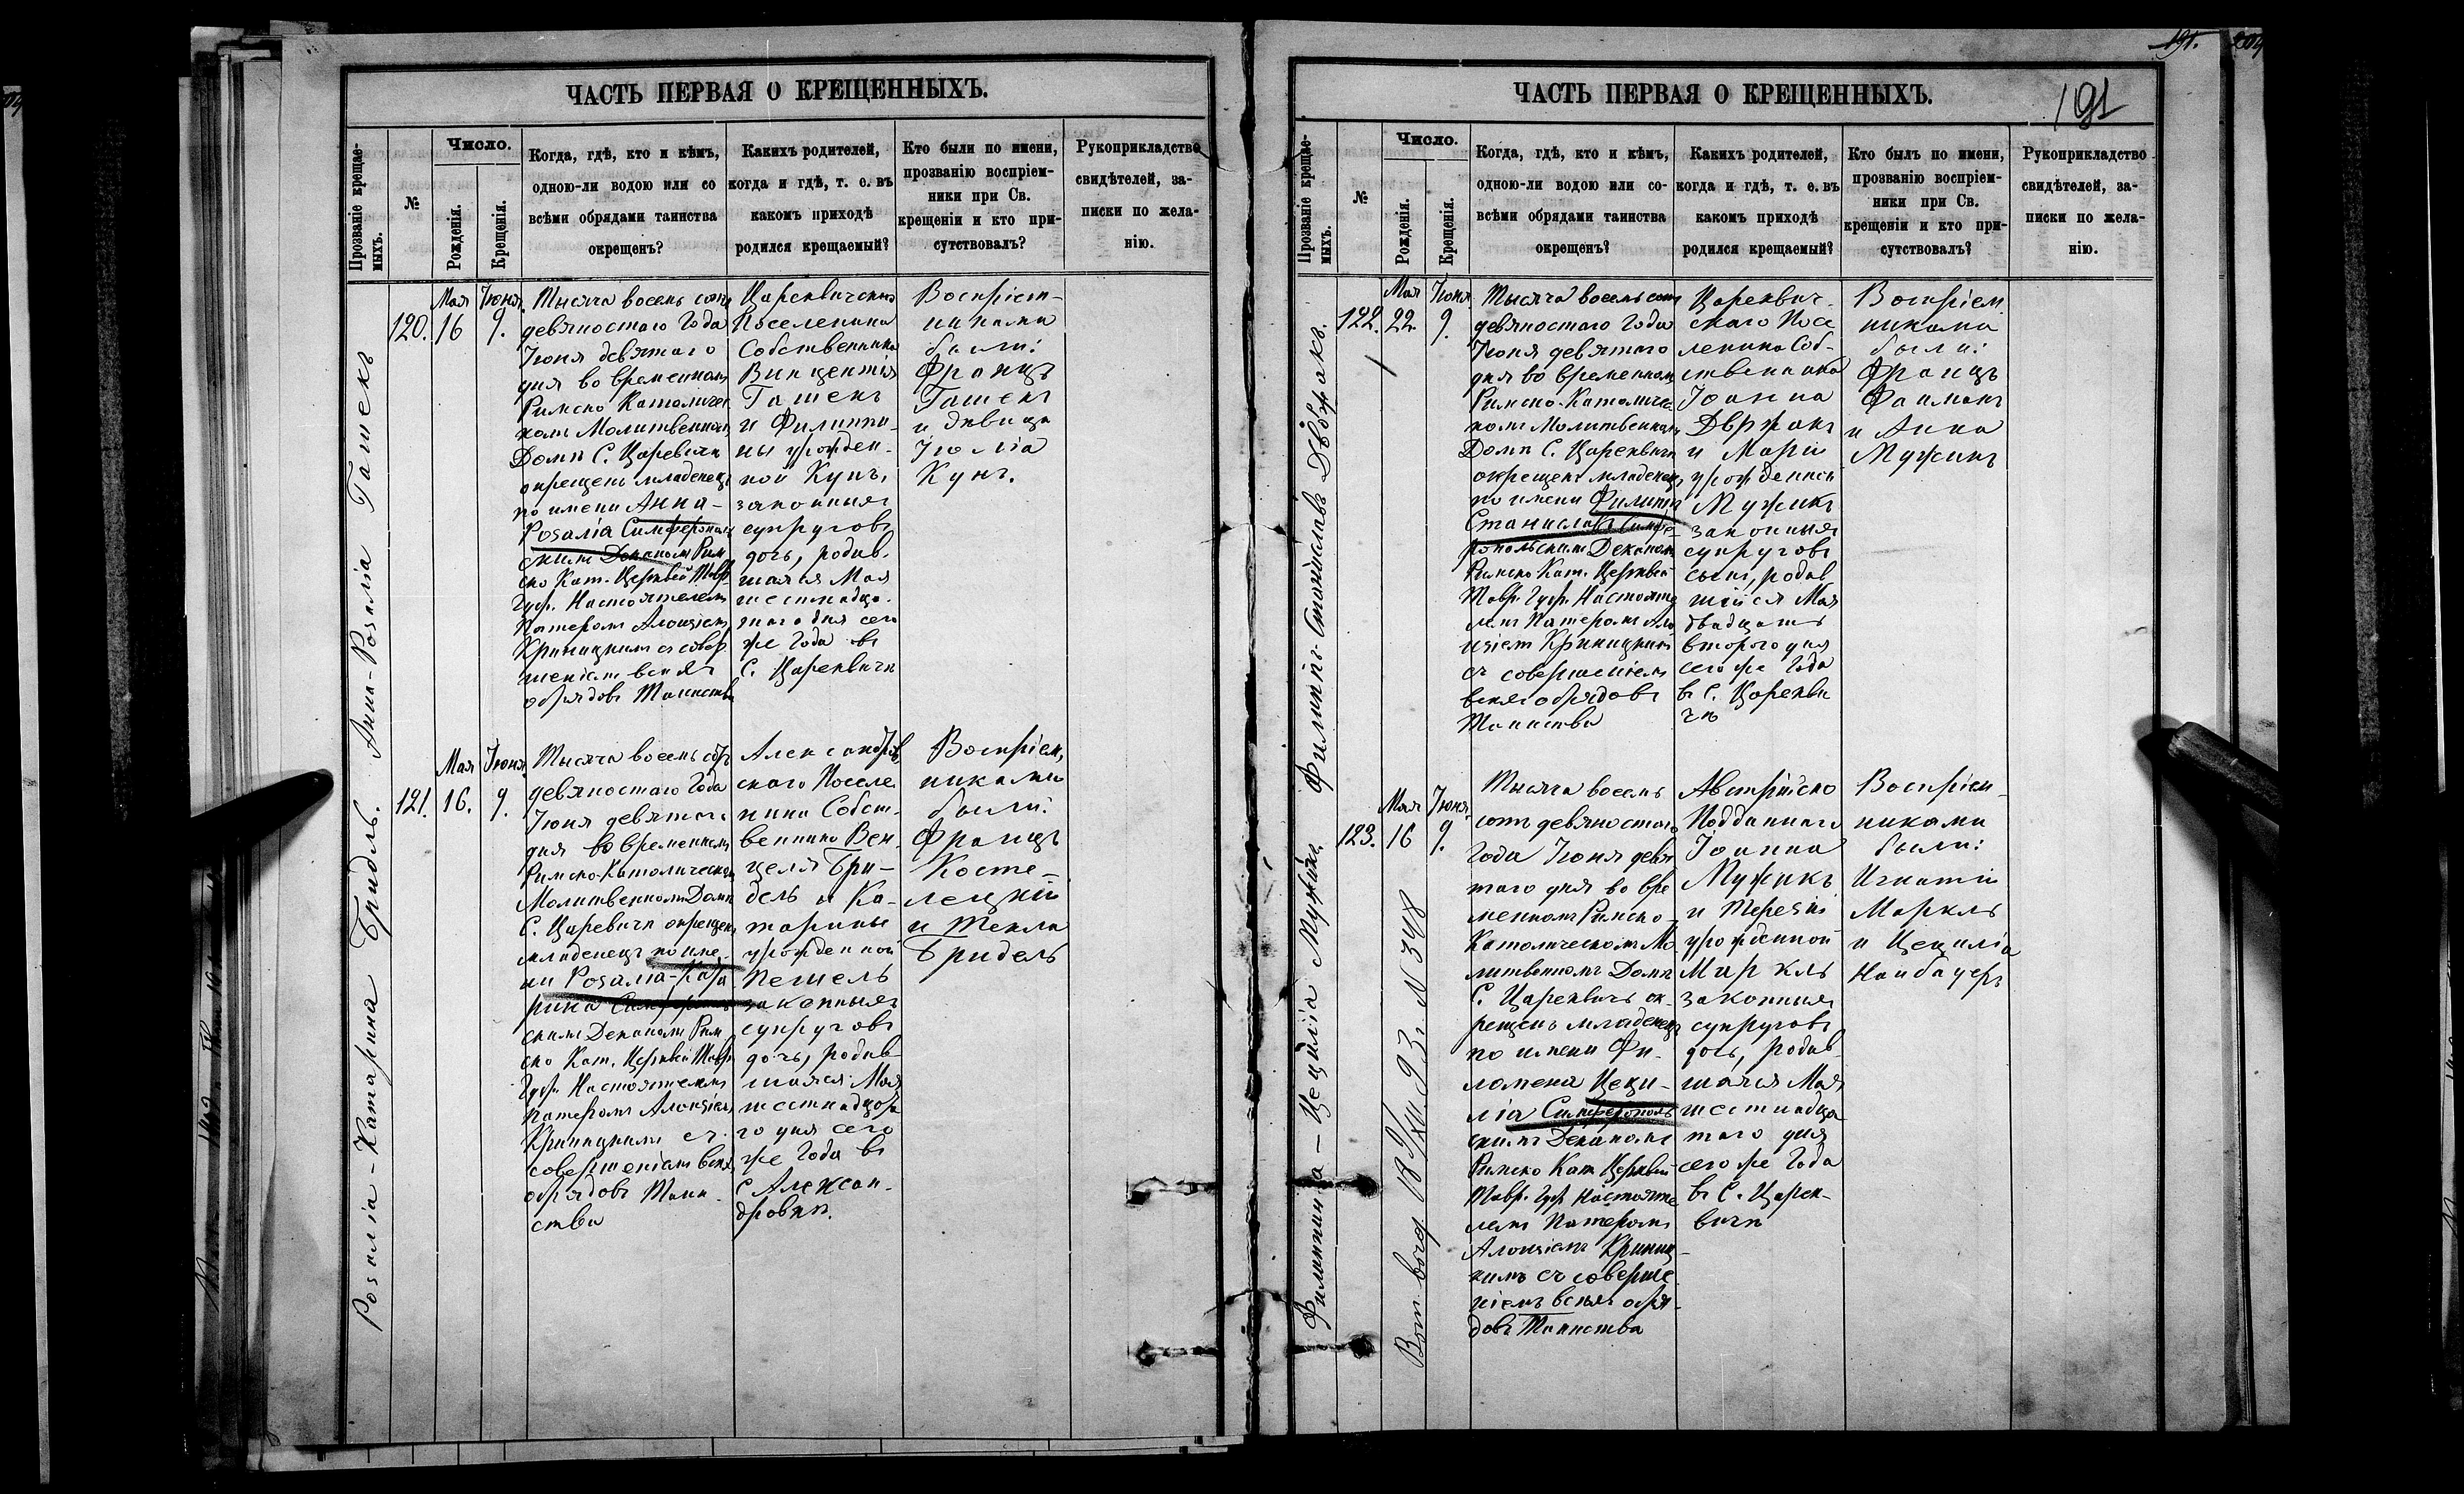 ЧАСТЬ ПЕРВАЯ О КРЕЩЕННЫХЪ.
Прозваніе крещаемыхъ.
№
Число.
Рожденія.
Крещенія.
Когда, гдѣ, кто и кѣмъ,
одною-ли водою или со
всѣми обрядами таинства
окрещенъ?
Какихъ родителей,
когда и гдѣ, т. е. въ
какомъ приходѣ
родился крещаемый?
Кто были по имени,
прозванію воспріем-
ники при Св.
крещеніи и кто при-
сутствовалъ?
Рукоприкладство
свидѣтелей, за-
писки по жела-
нію.
Анна-Розалія Гашекъ
120.
Мая
16
Іюня
9.
Тысяча восемь сотъ
девяностаго Года
Іюня девятаго
дня во временномъ
Римско Католичес
комъ Молитвенномъ
Домѣ С. Царевичи
окрещенъ младенецъ
по имени Анна-
Розалія Симферополь
скимъ Деканомъ Рим
ско Кат. Церквей Тавр.
Губ. Настоятелемъ
Патеромъ Алоизіемъ
Криницкимъ съ совер
шеніемъ всѣхъ
обрядовъ Таинства
Царевическаго
Поселенина
Собственника
Винцентія
Гашекъ
и Филиппи-
ны урожден-
ной Кунъ,
законныхъ
супруговъ
дочь, родив-
шаяся Мая
шестнадца-
таго дня сего
же Года въ
С. Царевичи
Воспріем-
никами
были:
Францъ
Гашекъ
и дѣвица
Юлія
Кунъ.
Розалія-Катарина Бридль.
121.
Мая
16.
Іюня
9.
Тысяча восемь сотъ
девяностаго Года
Іюня девятаго
дня во временномъ
Римско-Католическомъ
Молитвенномъ Домѣ
С. Царевичи окрещенъ
младенецъ по име-
ни Розалія-Ката
рина Симферополь
скимъ Деканомъ Рим
ско Кат. Церквей Тавр
Губ. Настоятелемъ
Патеромъ Алоизіемъ
Криницкимъ съ
совершеніемъ всѣхъ
обрядовъ Таин-
ства
Александров
скаго Поселе
нина Собст-
венника Вен-
целя Бри-
дель и Ка-
тарины
урожденной
Пешель
законныхъ
супруговъ
дочь, родив-
шаяся Мая
шестнадцата
го дня сего
же Года въ
С Алексан-
дровкѣ.
Воспріем,
никами
были:
Францъ
Косте-
лецкій
и Текла
Бридель
ЧАСТЬ ПЕРВАЯ О КРЕЩЕННЫХЪ.
191.
191
Прозваніе крещаемыхъ.
№
Число.
Рожденія.
Крещенія.
Когда, гдѣ, кто и кѣмъ,
одною-ли водою или со-
всѣми обрядами таинства
окрещенъ?
Какихъ родителей,
когда и гдѣ, т. е. въ
какомъ приходѣ
родился крещаемый?
Кто былъ по имени,
прозванію воспріем-
ники при Св.
крещеніи и кто при-
сутствовалъ?
Рукоприкладство
свидѣтелей, за-
писки по жела-
нію.
Филиппъ-Станиславъ Дворжакъ.
122.
Мая
22
Іюня
9.
Тысяча восемь сотъ
девяностаго Года
Іюня девятаго
дня во временномъ
Римско-Католичес
комъ Молитвенномъ
Домѣ С. Царевичи
окрещенъ младенецъ
по имени Филиппъ
Станиславъ Симфе-
ропольскимъ Деканомъ
Римско Кат. Церквей
Тавр. Губ. Настояте
лемъ Патеромъ Ало
изіемъ Криницкимъ
съ совершеніемъ
всѣхъ обрядовъ
Таинства
Царевич-
скаго Посе
ленина Соб-
ственника
Іоанна
Двржакъ
и Маріи
урожденной
Мужикъ
законныхъ
супруговъ
сынъ, родив
шійся Мая
двадцать
втораго дня
сего же Года
въ С. Цареви
чѣ
Воспріем
никами
были:
Францъ
Файманъ
и Анна
Мужикъ
Филомина-Цецилія Мужикъ
123.
Мая
16
Іюня
9.
Тысяча восемь
сотъ девяностаго
Года Іюня девя
таго дня во вре
менномъ Римско-
Католическомъ Мо
литвенномъ Домѣ
С. Царевичъ ок-
рещенъ младенецъ
по имени Фи-
ломена Цеци-
лія Симферополь
скимъ Деканомъ
Римско Кат Церквей
Тавр. Губ Настояте
лемъ Патеромъ
Алоизіемъ Криниц-
кимъ съ соверше
ніемъ всѣхъ обря-
довъ Таинства
Австрійско
Подданнаго
Іоанна
Мужикъ
и Терезіи
урожденной
Маркль
законныхъ
супруговъ
дочь, родив-
шаяся Мая
шестнадца
таго дня
сего же Года
въ С. Царе-
вичѣ
Воспріем-
никами
были:
Игнатій
Маркль
и Цецилія
Найбауеръ